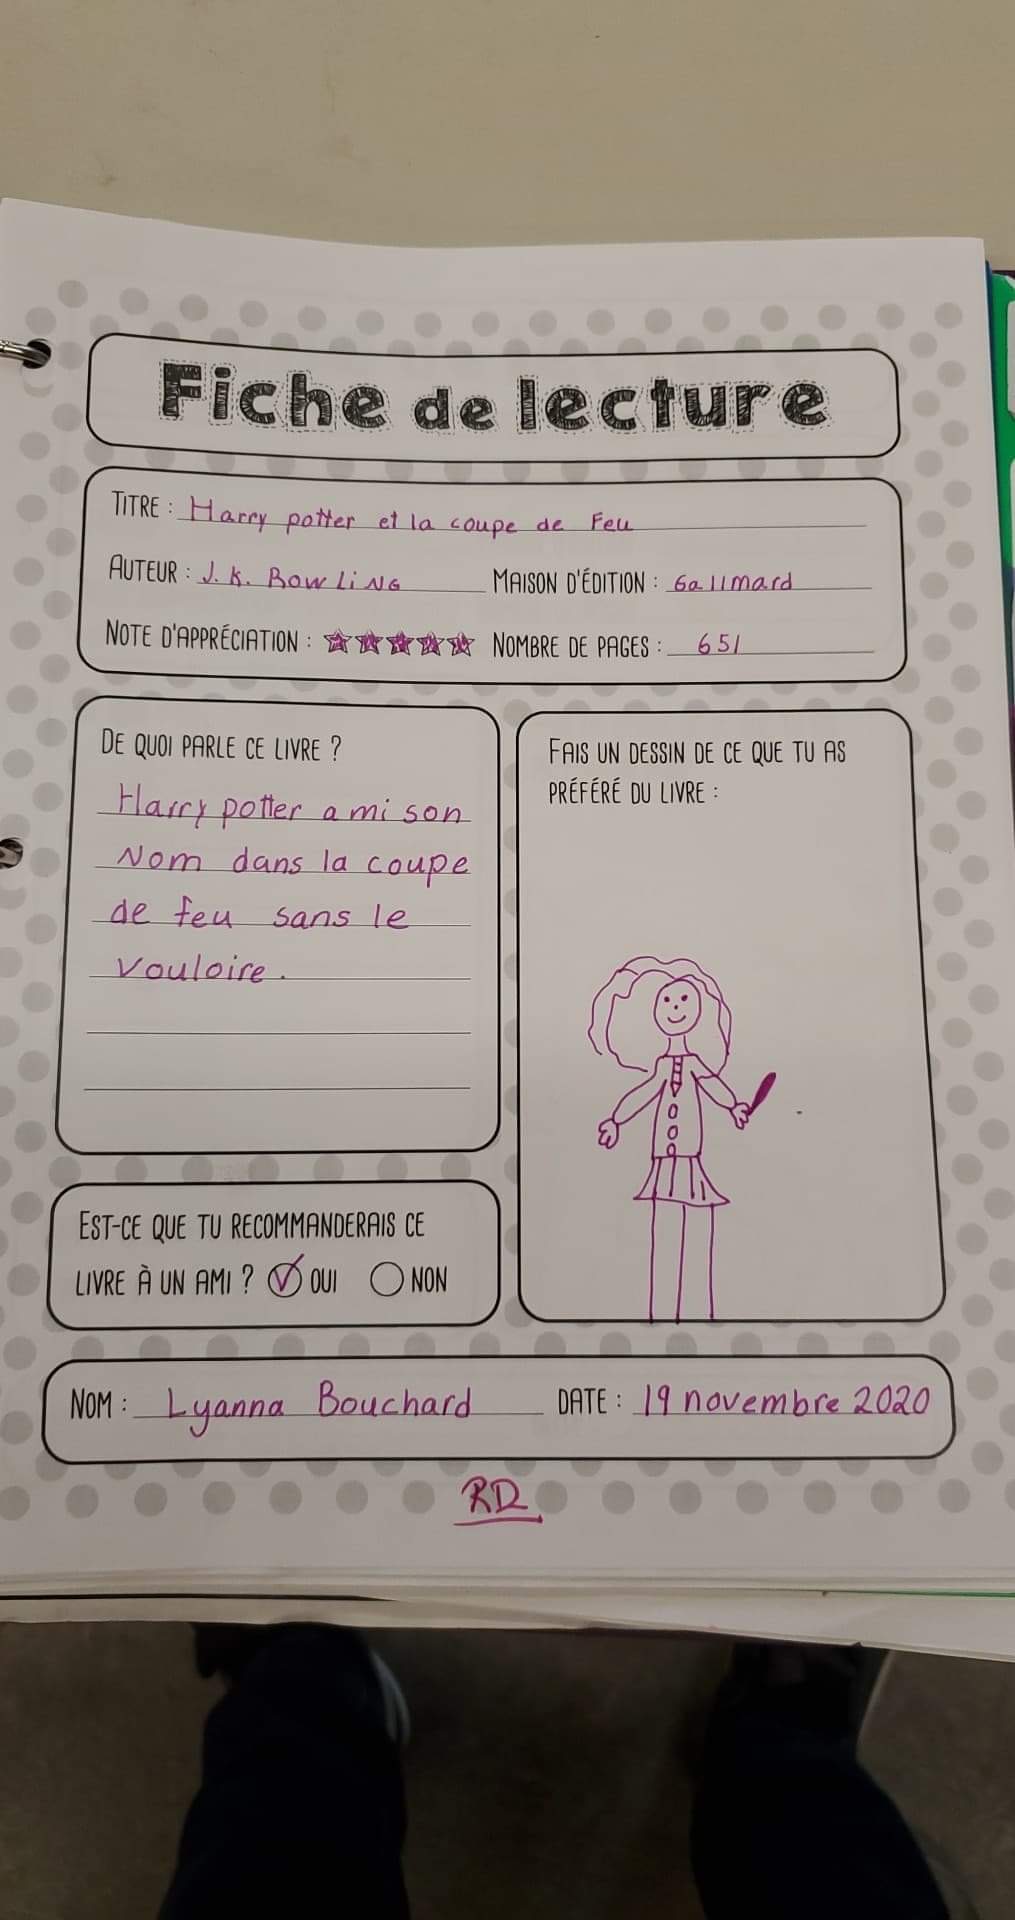 Fiche de lecture
TITRE : Harry potter et la coupe de Feu
AUTEUR : J.K. RowLiNG MAISON D'ÉDITION : Gallmard
NOTE D'APPRÉCIATION : NOMBRE DE PAGES : 651
DE QUOI PARLE CE LIVRE ?
Harry potter a mi son
Nom dans la coupe
de feu sans le
vouloire.
FAIS UN DESSIN DE CE QUE TU AS
PRÉFÉRÉ DU LIVRE :
EST-CE QUE TU RECOMMANDERAIS CE
LIVRE À UN AMI ? OUI NON
NOM : Lyanna Bouchard DATE : 19 novembre 2020
RD